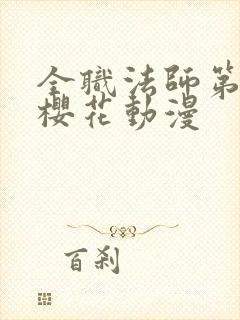 全職法師第
櫻花動漫
百刹